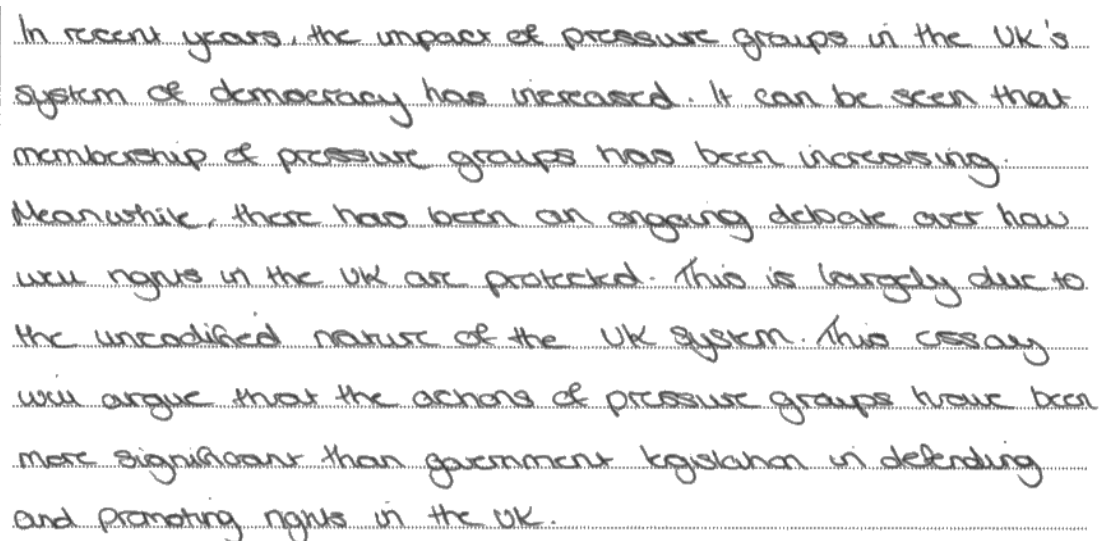 In recent years, the impact of pressure groups in the UK's
system of democracy has increased. It can be seen that
membership of pressure groups has been increasing.
Meanwhile, there has been an ongoing debate over how
well rights in the UK are protected. This is largely due to
the uncodified nature of the UK system. This essay
will argue that the actions of pressure groups have been
more significant than government legislation in defending
and promoting rights in the UK.